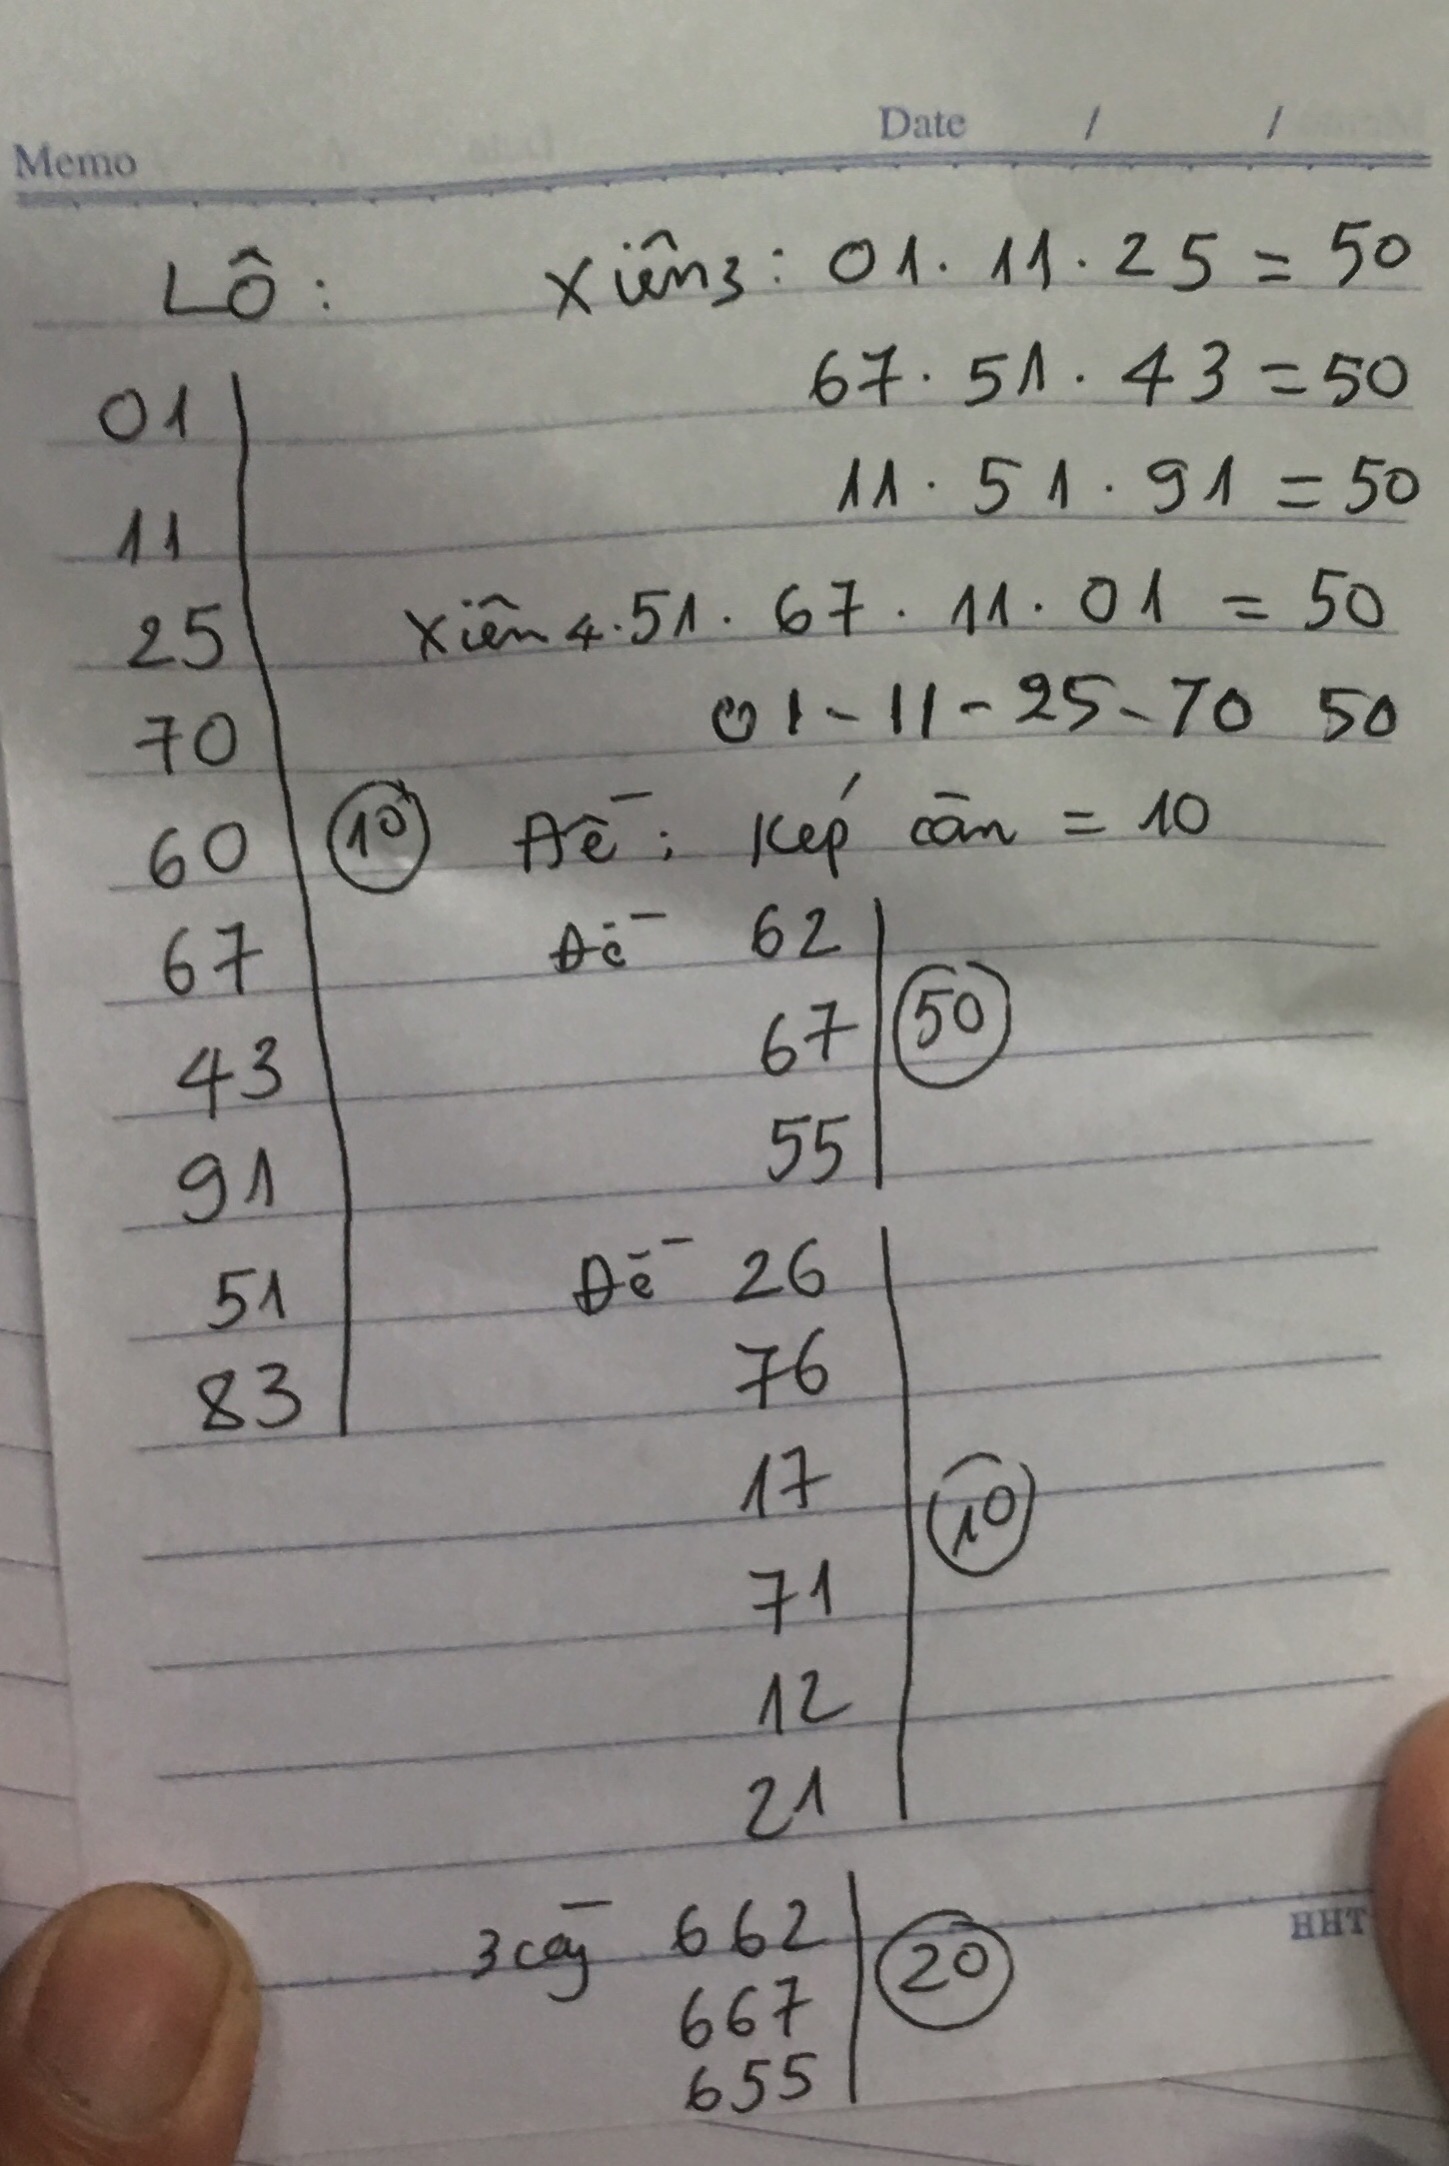 Memo
Date / /
Lô:
01
11
25
70
60
67
43
91
51
83
10
Xiên3: 01. 11. 25 = 50
67. 51. 43 = 50
11. 51. 91 = 50
Xiên 4. 51. 67. 11. 01 = 50
01-11-25-70 50
Đề: Kép căn = 10
Đề 62
67
55
50
Đề 26
76
17
71
12
21
10
3 cây 662
667
655
20
HHT